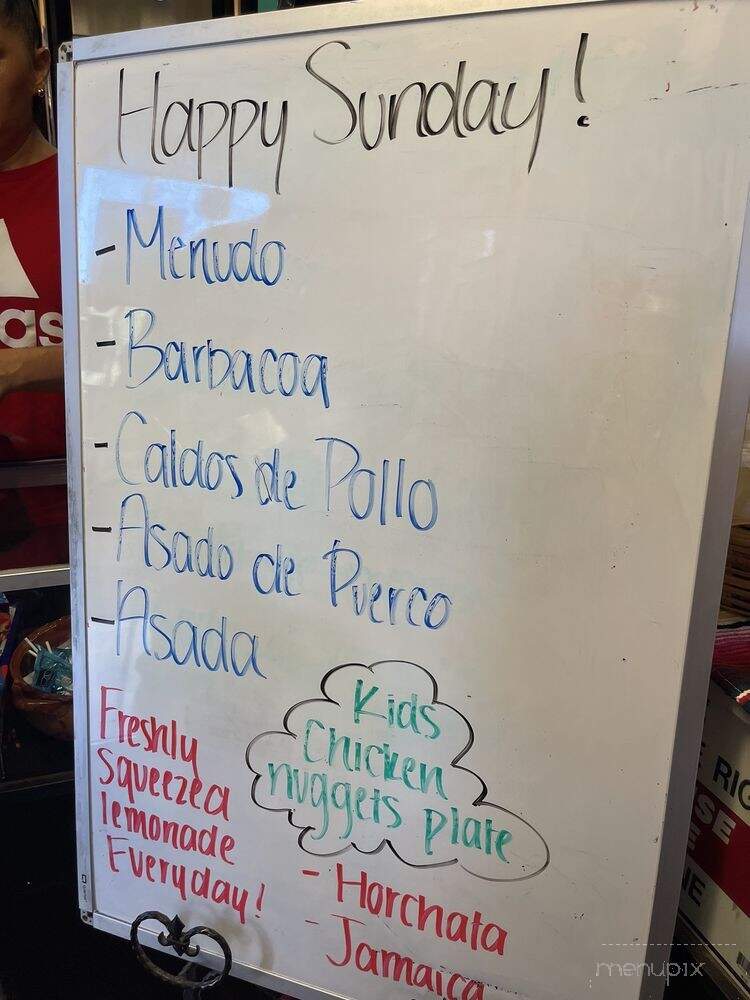 Happy Sunday!
- Menudo
- Barbacoa
- Caldos de Pollo
- Asado de Puerco
- Asada
Freshly
squeezed
lemonade
Everyday!
Kids
Chicken
nuggets plate
- Horchata
- Jamaica
as
RIG
SE
NE
menupix